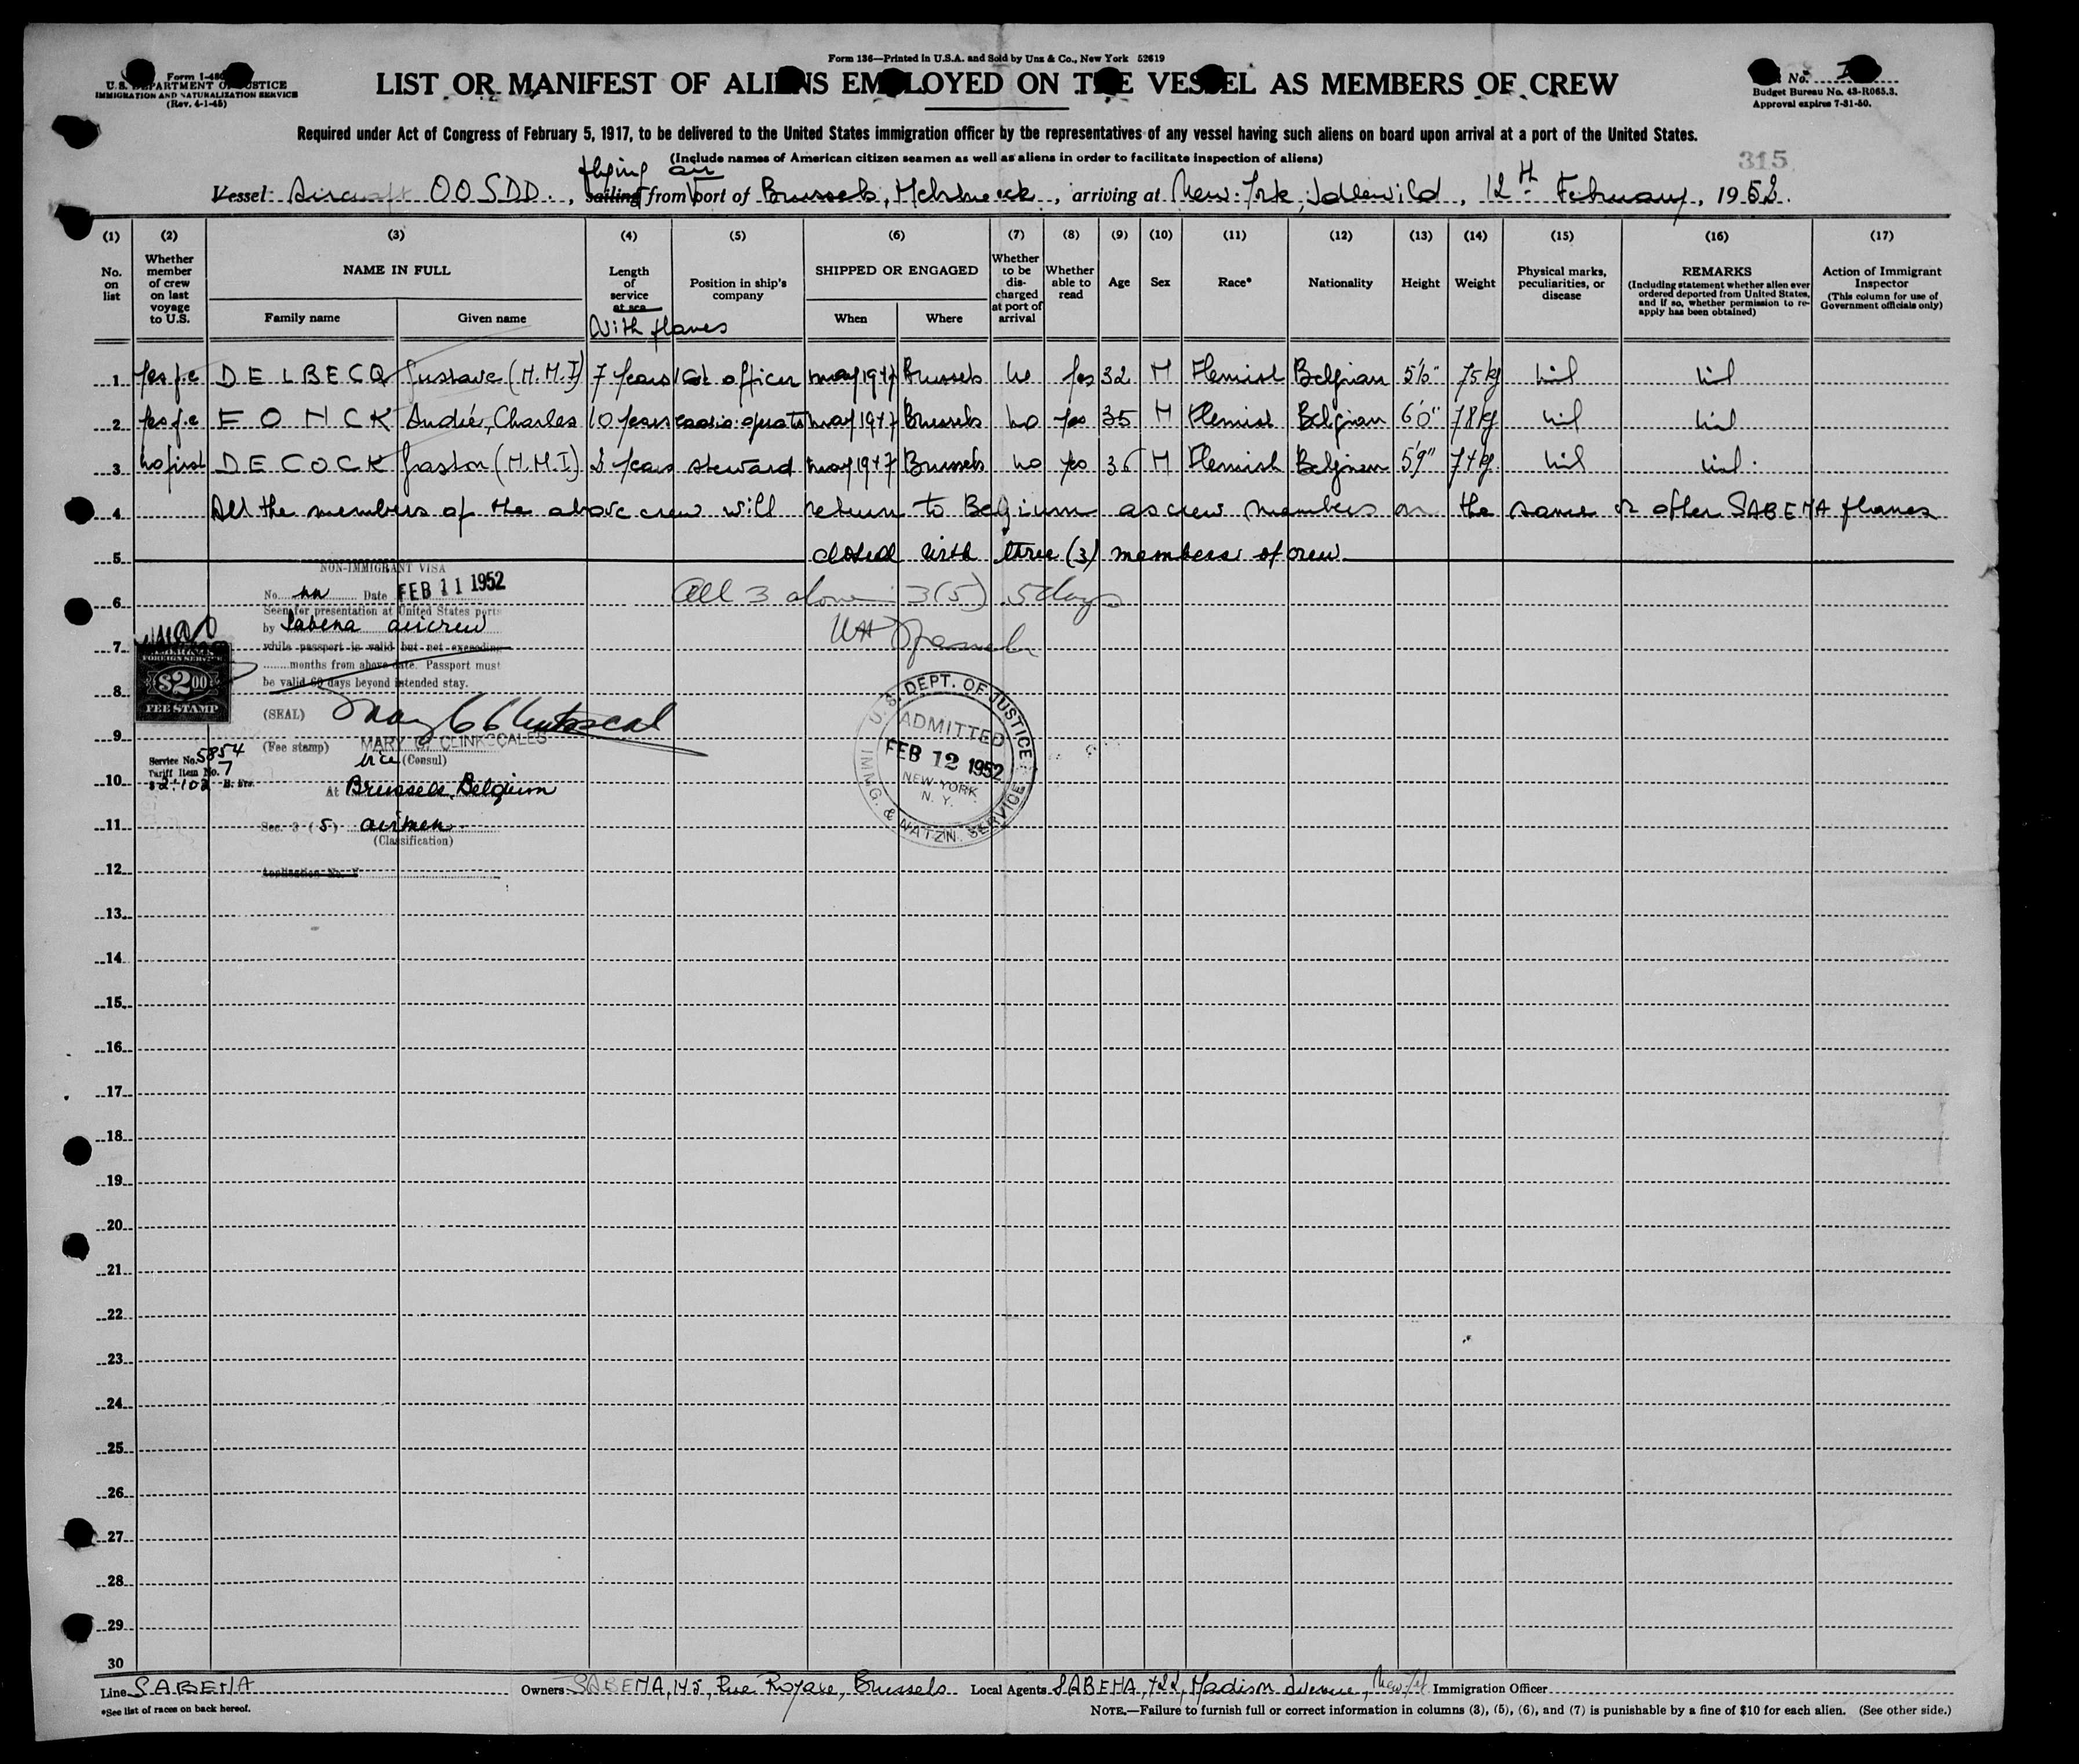 Form 136—Printed in U.S.A. and Sold by Unz & Co., New York 52619
U.S. DEPARTMENT OF JUSTICE
IMMIGRATION AND NATURALIZATION SERVICE
(Rev. 4-1-45)
LIST OR MANIFEST OF ALIENS EMPLOYED ON THE VESSEL AS MEMBERS OF CREW
No.
Budget Bureau No. 43-R065.3.
Approval expires 7-31-50.
Required under Act of Congress of February 5, 1917, to be delivered to the United States immigration officer by the representatives of any vessel having such aliens on board upon arrival at a port of the United States.
(Include names of American citizen seamen as well as aliens in order to facilitate inspection of aliens)
315
flying air
Vessel Aircraft OOSDD, sailing from port of Brussels, Melsbroeck, arriving at New-York, Idlewild, 12th February, 1952.
(1) (2) (3) (4) (5) (6) (7) (8) (9) (10) (11) (12) (13) (14) (15) (16) (17)
No. on list
Whether member of crew on last voyage to U.S.
NAME IN FULL
Family name
Given name
Length of service at sea
With planes
Position in ship's company
SHIPPED OR ENGAGED
When
Where
Whether to be discharged at port of arrival
Whether able to read
Age
Sex
Race*
Nationality
Height
Weight
Physical marks, peculiarities, or disease
REMARKS
(Including statement whether alien ever ordered deported from United States, and if so, whether permission to reapply has been obtained)
Action of Immigrant Inspector
(This column for use of Government officials only)
1 yes DELBECQ Gustave (N.M.I) 7 years 1st officer may 1947 Brussels no yes 32 M Flemish Belgian 5'10" 75 kg nil nil
2 yes FONCK André, Charles 10 years radio operator may 1947 Brussels no yes 35 M Flemish Belgian 6'0" 78 kg nil nil
3 no first DECOCK Gaston (N.M.I) years steward may 1947 Brussels no yes M Flemish Belgian 5'9" 74 kg nil nil.
4 All the members of the above crew will return to Belgium as crew members on the same or other SABENA planes
5 closed with three (3) members of crew
NON-IMMIGRANT VISA
No. Date FEB 11 1952
Seen for presentation at United States ports
by Sabena aircrew
while passport is valid but not exceeding
months from above date. Passport must
be valid 60 days beyond intended stay.
(SEAL)
(Fee stamp) MARY C. CLINKSCALES
Vice (Consul)
At Brussels, Belgium
Sec. 3 (5) airmen
(Classification)
Application No. V
FOREIGN SERVICE
$2.00
FEE STAMP
Service No. 5854
Tariff Item No. 7
All 3 above 3(5) 5 days
U.S. DEPT. OF JUSTICE
ADMITTED
FEB 12 1952
NEW YORK
N. Y.
IMMG. & NATZN. SERVICE
6
7
8
9
10
11
12
13
14
15
16
17
18
19
20
21
22
23
24
25
26
27
28
29
30
Line SABENA Owners SABENA, 145, Rue Royale, Brussels Local Agents SABENA, 422, Madison Avenue, New York Immigration Officer
*See list of races on back hereof.
NOTE.—Failure to furnish full or correct information in columns (3), (5), (6), and (7) is punishable by a fine of $10 for each alien. (See other side.)